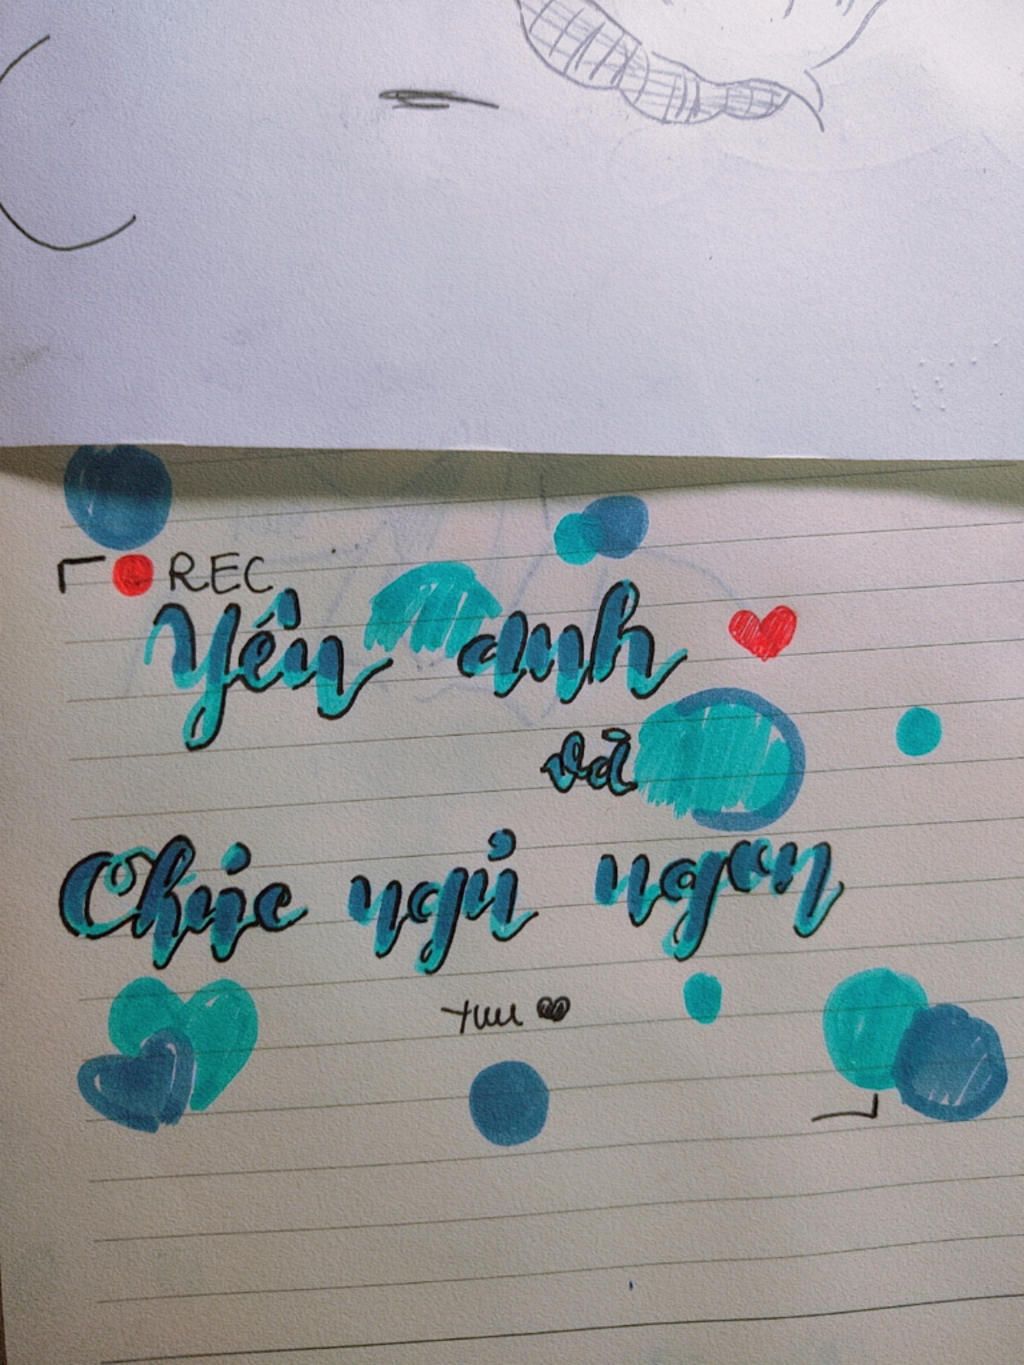 REC
Yêu anh
và
Chúc ngủ ngon